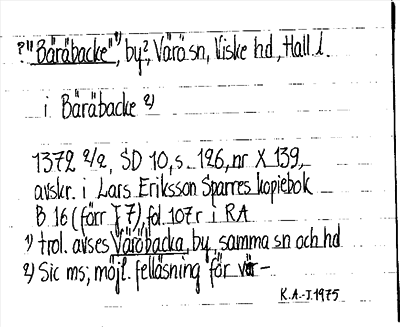 ?"Bäräbacke"¹⁾, by?, Värö sn, Viske hd, Hall. l.
i Bäräbacke ²⁾
1372 2/2, SD 10, s. 126, nr X 139,
avskr. i Lars Eriksson Sparres kopiebok
B 16 (förr I 7), fol 107 r i RA
1) trol. avses Väröbacka, by, samma sn och hd
2) Sic ms; möjl. felläsning för vär-
K.A.-J. 1975